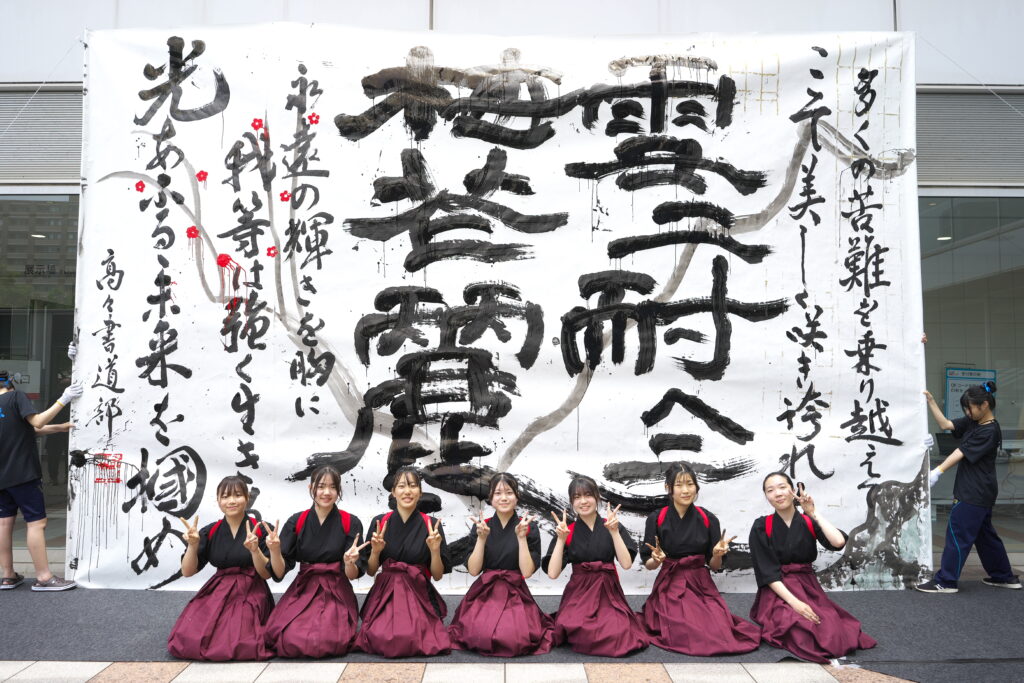 多くの苦難を乗り越え
ここで美しく咲き誇れ
雪ニ耐ヘテ
梅花麗
永遠の輝きを胸に
我等は強く生き
光あふる未来を掴め
高々書道部